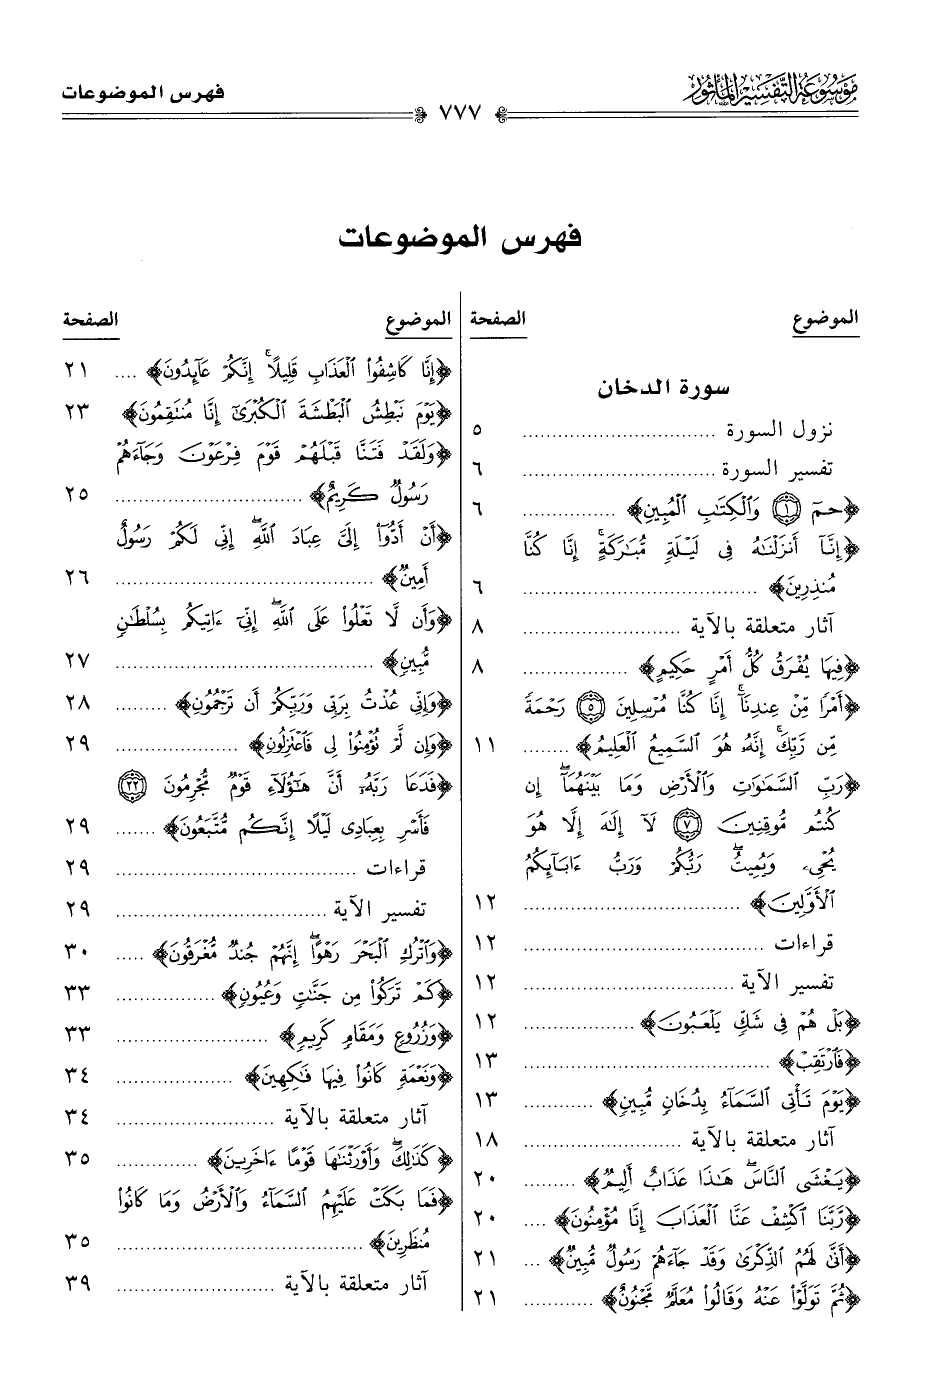 موسوعة التفسير المأثور
٧٧٧
فهرس الموضوعات
فهرس الموضوعات
الموضوع الصفحة
سورة الدخان
نزول السورة .............................. ٥
تفسير السورة .............................. ٦
﴿حمٓ ۝١ وَٱلْكِتَٰبِ ٱلْمُبِينِ﴾ ............... ٦
﴿إِنَّآ أَنزَلْنَٰهُ فِى لَيْلَةٍ مُّبَٰرَكَةٍ ۚ إِنَّا كُنَّا
مُنذِرِينَ﴾ .............................. ٦
آثار متعلقة بالآية ......................... ٨
﴿فِيهَا يُفْرَقُ كُلُّ أَمْرٍ حَكِيمٍ﴾ ................ ٨
﴿أَمْرًا مِّنْ عِندِنَآ ۚ إِنَّا كُنَّا مُرْسِلِينَ ۝٥ رَحْمَةً
مِّن رَّبِّكَ ۚ إِنَّهُۥ هُوَ ٱلسَّمِيعُ ٱلْعَلِيمُ﴾ ........ ١١
﴿رَبِّ ٱلسَّمَٰوَٰتِ وَٱلْأَرْضِ وَمَا بَيْنَهُمَآ ۖ إِن
كُنتُم مُّوقِنِينَ ۝٧ لَآ إِلَٰهَ إِلَّا هُوَ
يُحْىِۦ وَيُمِيتُ ۖ رَبُّكُمْ وَرَبُّ ءَابَآئِكُمُ
ٱلْأَوَّلِينَ﴾ .............................. ١٢
قراءات .............................. ١٢
تفسير الآية .............................. ١٢
﴿بَلْ هُمْ فِى شَكٍّ يَلْعَبُونَ﴾ ................. ١٢
﴿فَٱرْتَقِبْ﴾ .............................. ١٣
﴿يَوْمَ تَأْتِى ٱلسَّمَآءُ بِدُخَانٍ مُّبِينٍ﴾ ........... ١٣
آثار متعلقة بالآية ......................... ١٨
﴿يَغْشَى ٱلنَّاسَ ۖ هَٰذَا عَذَابٌ أَلِيمٌ﴾ .......... ٢٠
﴿رَّبَّنَا ٱكْشِفْ عَنَّا ٱلْعَذَابَ إِنَّا مُؤْمِنُونَ﴾ .... ٢٠
﴿أَنَّىٰ لَهُمُ ٱلذِّكْرَىٰ وَقَدْ جَآءَهُمْ رَسُولٌ مُّبِينٌ﴾ ... ٢١
﴿ثُمَّ تَوَلَّوْا۟ عَنْهُ وَقَالُوا۟ مُعَلَّمٌ مَّجْنُونٌ﴾ ........... ٢١
الموضوع الصفحة
﴿إِنَّا كَاشِفُوا۟ ٱلْعَذَابِ قَلِيلًا ۚ إِنَّكُمْ عَآئِدُونَ﴾ .... ٢١
﴿يَوْمَ نَبْطِشُ ٱلْبَطْشَةَ ٱلْكُبْرَىٰٓ إِنَّا مُنتَقِمُونَ﴾ ٢٣
﴿وَلَقَدْ فَتَنَّا قَبْلَهُمْ قَوْمَ فِرْعَوْنَ وَجَآءَهُمْ
رَسُولٌ كَرِيمٌ﴾ ........................... ٢٥
﴿أَنْ أَدُّوٓا۟ إِلَىَّ عِبَادَ ٱللَّهِ ۖ إِنِّى لَكُمْ رَسُولٌ
أَمِينٌ﴾ .............................. ٢٦
﴿وَأَن لَّا تَعْلُوا۟ عَلَى ٱللَّهِ ۖ إِنِّىٓ ءَاتِيكُم بِسُلْطَٰنٍ
مُّبِينٍ﴾ .............................. ٢٧
﴿وَإِنِّى عُذْتُ بِرَبِّى وَرَبِّكُمْ أَن تَرْجُمُونِ﴾ ......... ٢٨
﴿وَإِن لَّمْ تُؤْمِنُوا۟ لِى فَٱعْتَزِلُونِ﴾ ................. ٢٩
﴿فَدَعَا رَبَّهُۥٓ أَنَّ هَٰٓؤُلَآءِ قَوْمٌ مُّجْرِمُونَ ۝٢٢
فَأَسْرِ بِعِبَادِى لَيْلًا إِنَّكُم مُّتَّبَعُونَ﴾ ....... ٢٩
قراءات .............................. ٢٩
تفسير الآية .............................. ٢٩
﴿وَٱتْرُكِ ٱلْبَحْرَ رَهْوًا ۖ إِنَّهُمْ جُندٌ مُّغْرَقُونَ﴾ ..... ٣٠
﴿كَمْ تَرَكُوا۟ مِن جَنَّٰتٍ وَعُيُونٍ﴾ ............... ٣٣
﴿وَزُرُوعٍ وَمَقَامٍ كَرِيمٍ﴾ ....................... ٣٣
﴿وَنَعْمَةٍ كَانُوا۟ فِيهَا فَٰكِهِينَ﴾ .................. ٣٤
آثار متعلقة بالآية ......................... ٣٤
﴿كَذَٰلِكَ ۖ وَأَوْرَثْنَٰهَا قَوْمًا ءَاخَرِينَ﴾ ............. ٣٥
﴿فَمَا بَكَتْ عَلَيْهِمُ ٱلسَّمَآءُ وَٱلْأَرْضُ وَمَا كَانُوا۟
مُنظَرِينَ﴾ .............................. ٣٥
آثار متعلقة بالآية ......................... ٣٩